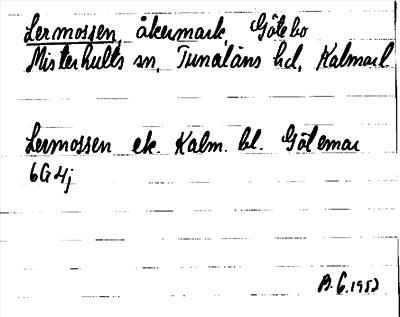 Lermossen, åkermark, Götebo
Misterhults sn, Tunaläns hd, Kalmar l
Lermossen ek. Kalm. bl. Götemar
6G 4j
B.G. 1952